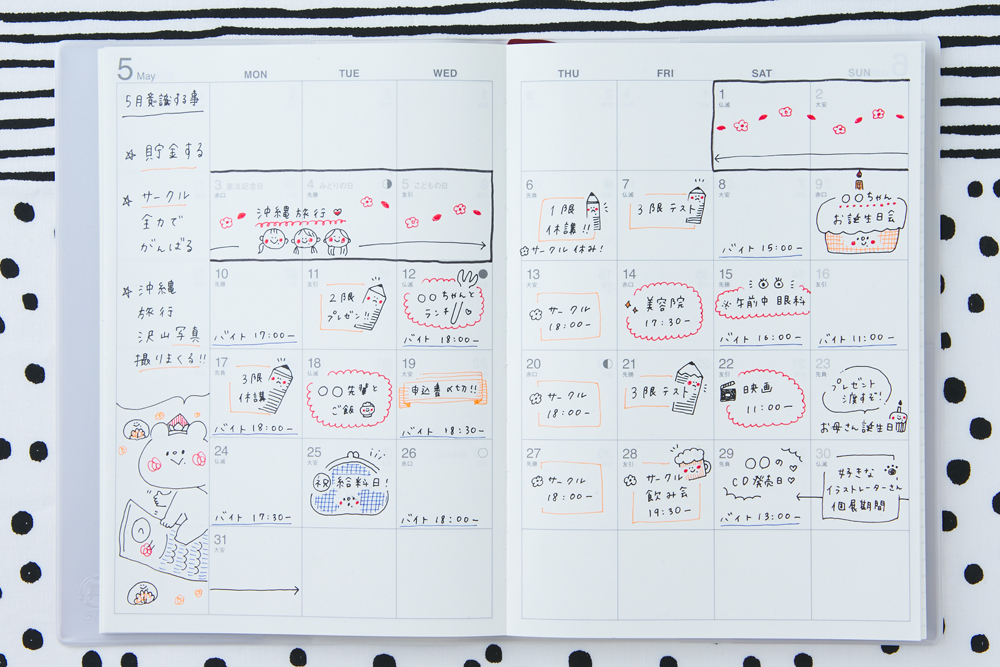 5 May
MON
TUE
WED
THU
FRI
SAT
SUN
5月意識する事
☆ 貯金する
☆ サークル
全力で
がんばる
☆ 沖縄
旅行
沢山写真
撮りまくる!!
1
仏滅
2
大安
3 憲法記念日
赤口
4 みどりの日
先勝
5 こどもの日
友引
沖縄旅行
6
先負
1限
休講!!
サークル休み!
7
仏滅
3限テスト
8
大安
バイト 15:00〜
9
赤口
〇〇ちゃん
お誕生日会
10
先勝
バイト 17:00〜
11
友引
2限
プレゼン!!
12
仏滅
〇〇ちゃんと
ランチ
バイト 18:00〜
13
大安
サークル
18:00〜
14
赤口
美容院
17:30〜
15
先勝
※午前中 眼科
バイト 16:00〜
16
友引
バイト 11:00〜
17
先負
3限
休講
バイト 18:00〜
18
仏滅
〇〇先輩と
ご飯
19
大安
申込書〆切!!
バイト 18:30〜
20
赤口
サークル
18:00〜
21
先勝
3限テスト
22
友引
映画
11:00〜
23
先負
プレゼント
渡すぞ!
お母さん誕生日
24
仏滅
バイト 17:30〜
25
大安
祝 給料日!
26
赤口
バイト 18:00〜
27
先勝
サークル
18:00〜
28
友引
サークル
飲み会
19:30〜
29
先負
〇〇の
CD発売日
バイト 13:00〜
30
仏滅
好きな
イラストレーターさん
個展期間
31
大安